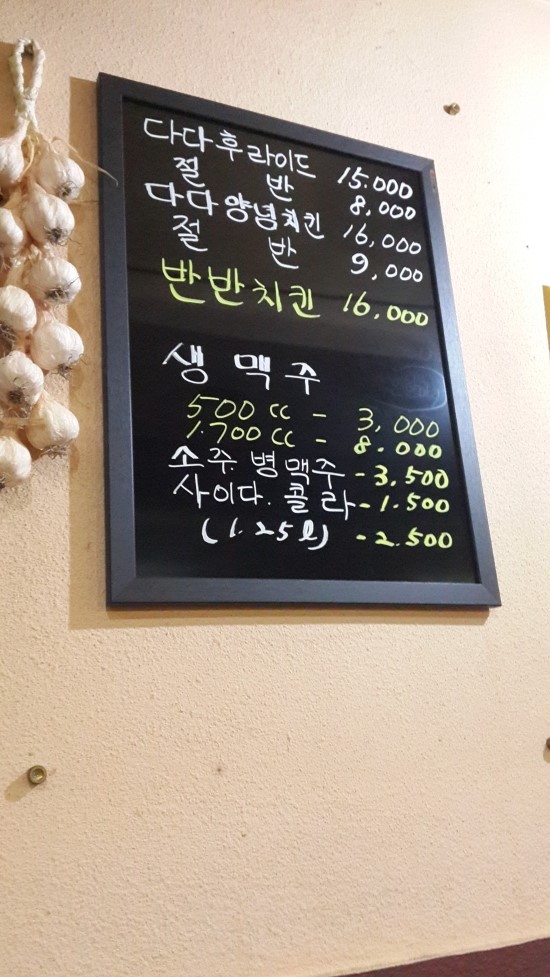 다다후라이드 15.000
절 반 8,000
다다양념치킨 16,000
절 반 9,000
반반치킨 16.000
생맥주
500cc - 3,000
1.700cc - 8.000
소주. 병맥주 - 3,500
사이다. 콜라 - 1.500
(1.25l) - 2.500